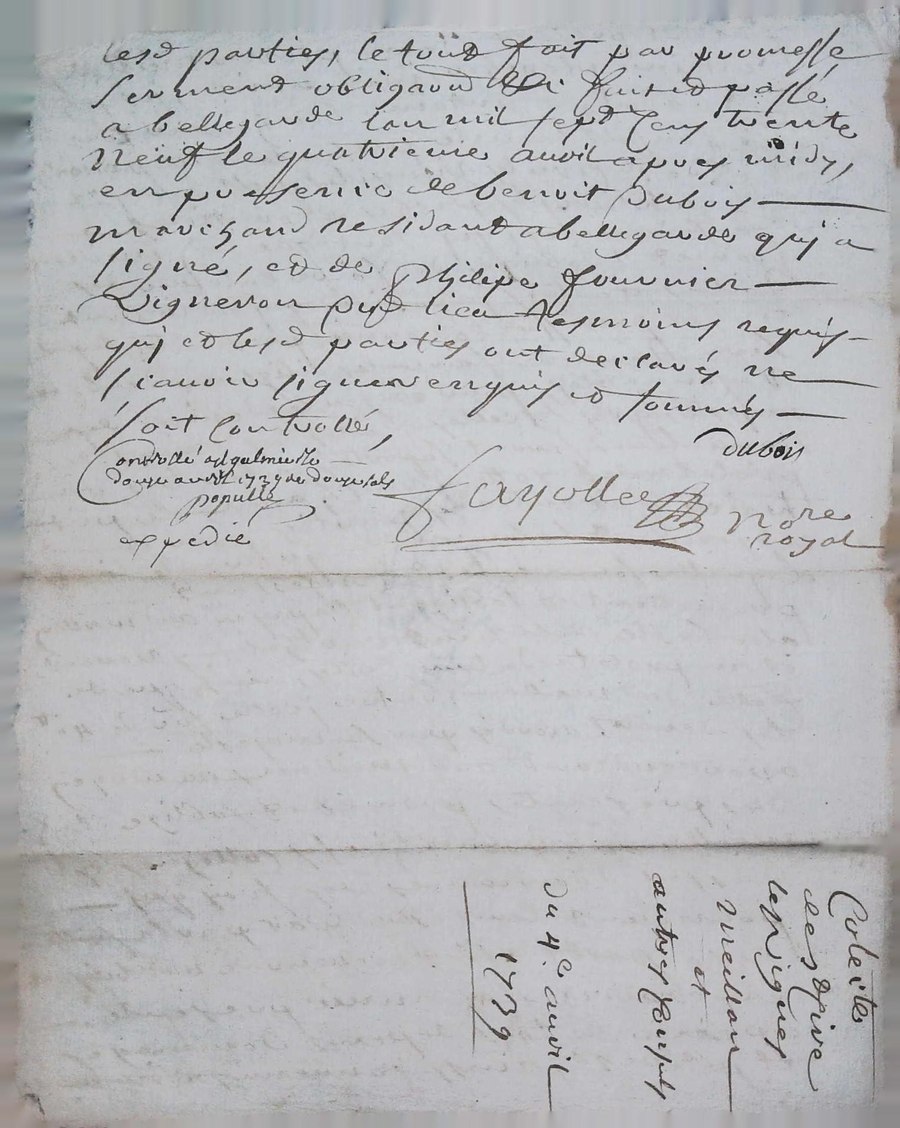 lesd parties, le toud fait par promesse
serment obligaon &c fait et passé
a bellegarde lan mil sept Cens trente
Neuf le quatrieme avril apres midy,
en presence de benoit Dubois
marchand residant a bellegarde quy a
signé, et de philipe fournier
Vigneron dud lieu tesmoins requis
quj et lesd parties ont declarés ne
scavoir signer enquis et sommés
soit Controllé,
dubois
Controllé a st galmier le
douze avril 1739 douze sols
popullé
fayolle Nore
royal
expedié
Colectes
de
les Vignes
meillan
et
autres
du 4e avril
1739